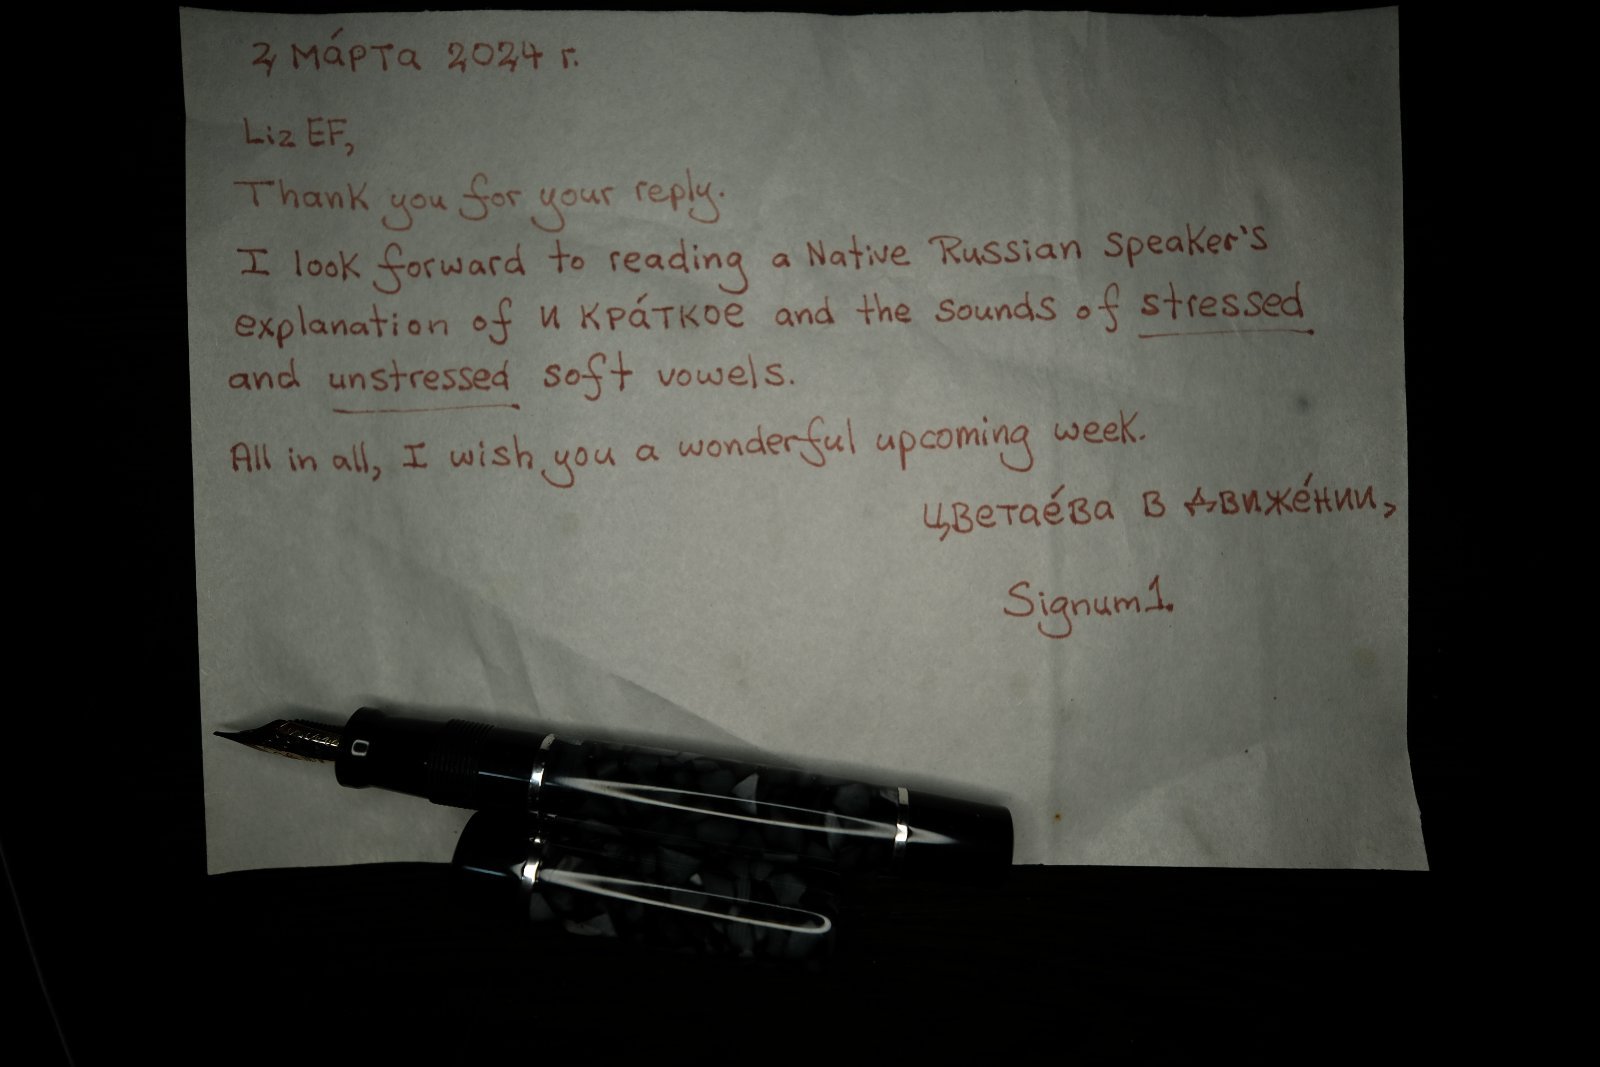 2 ма́рта 2024 г.
Liz EF,
Thank you for your reply.
I look forward to reading a Native Russian speaker's
explanation of и кра́ткое and the sounds of stressed
and unstressed soft vowels.
All in all, I wish you a wonderful upcoming week.
Цветае́ва в движе́нии,
Signum1.